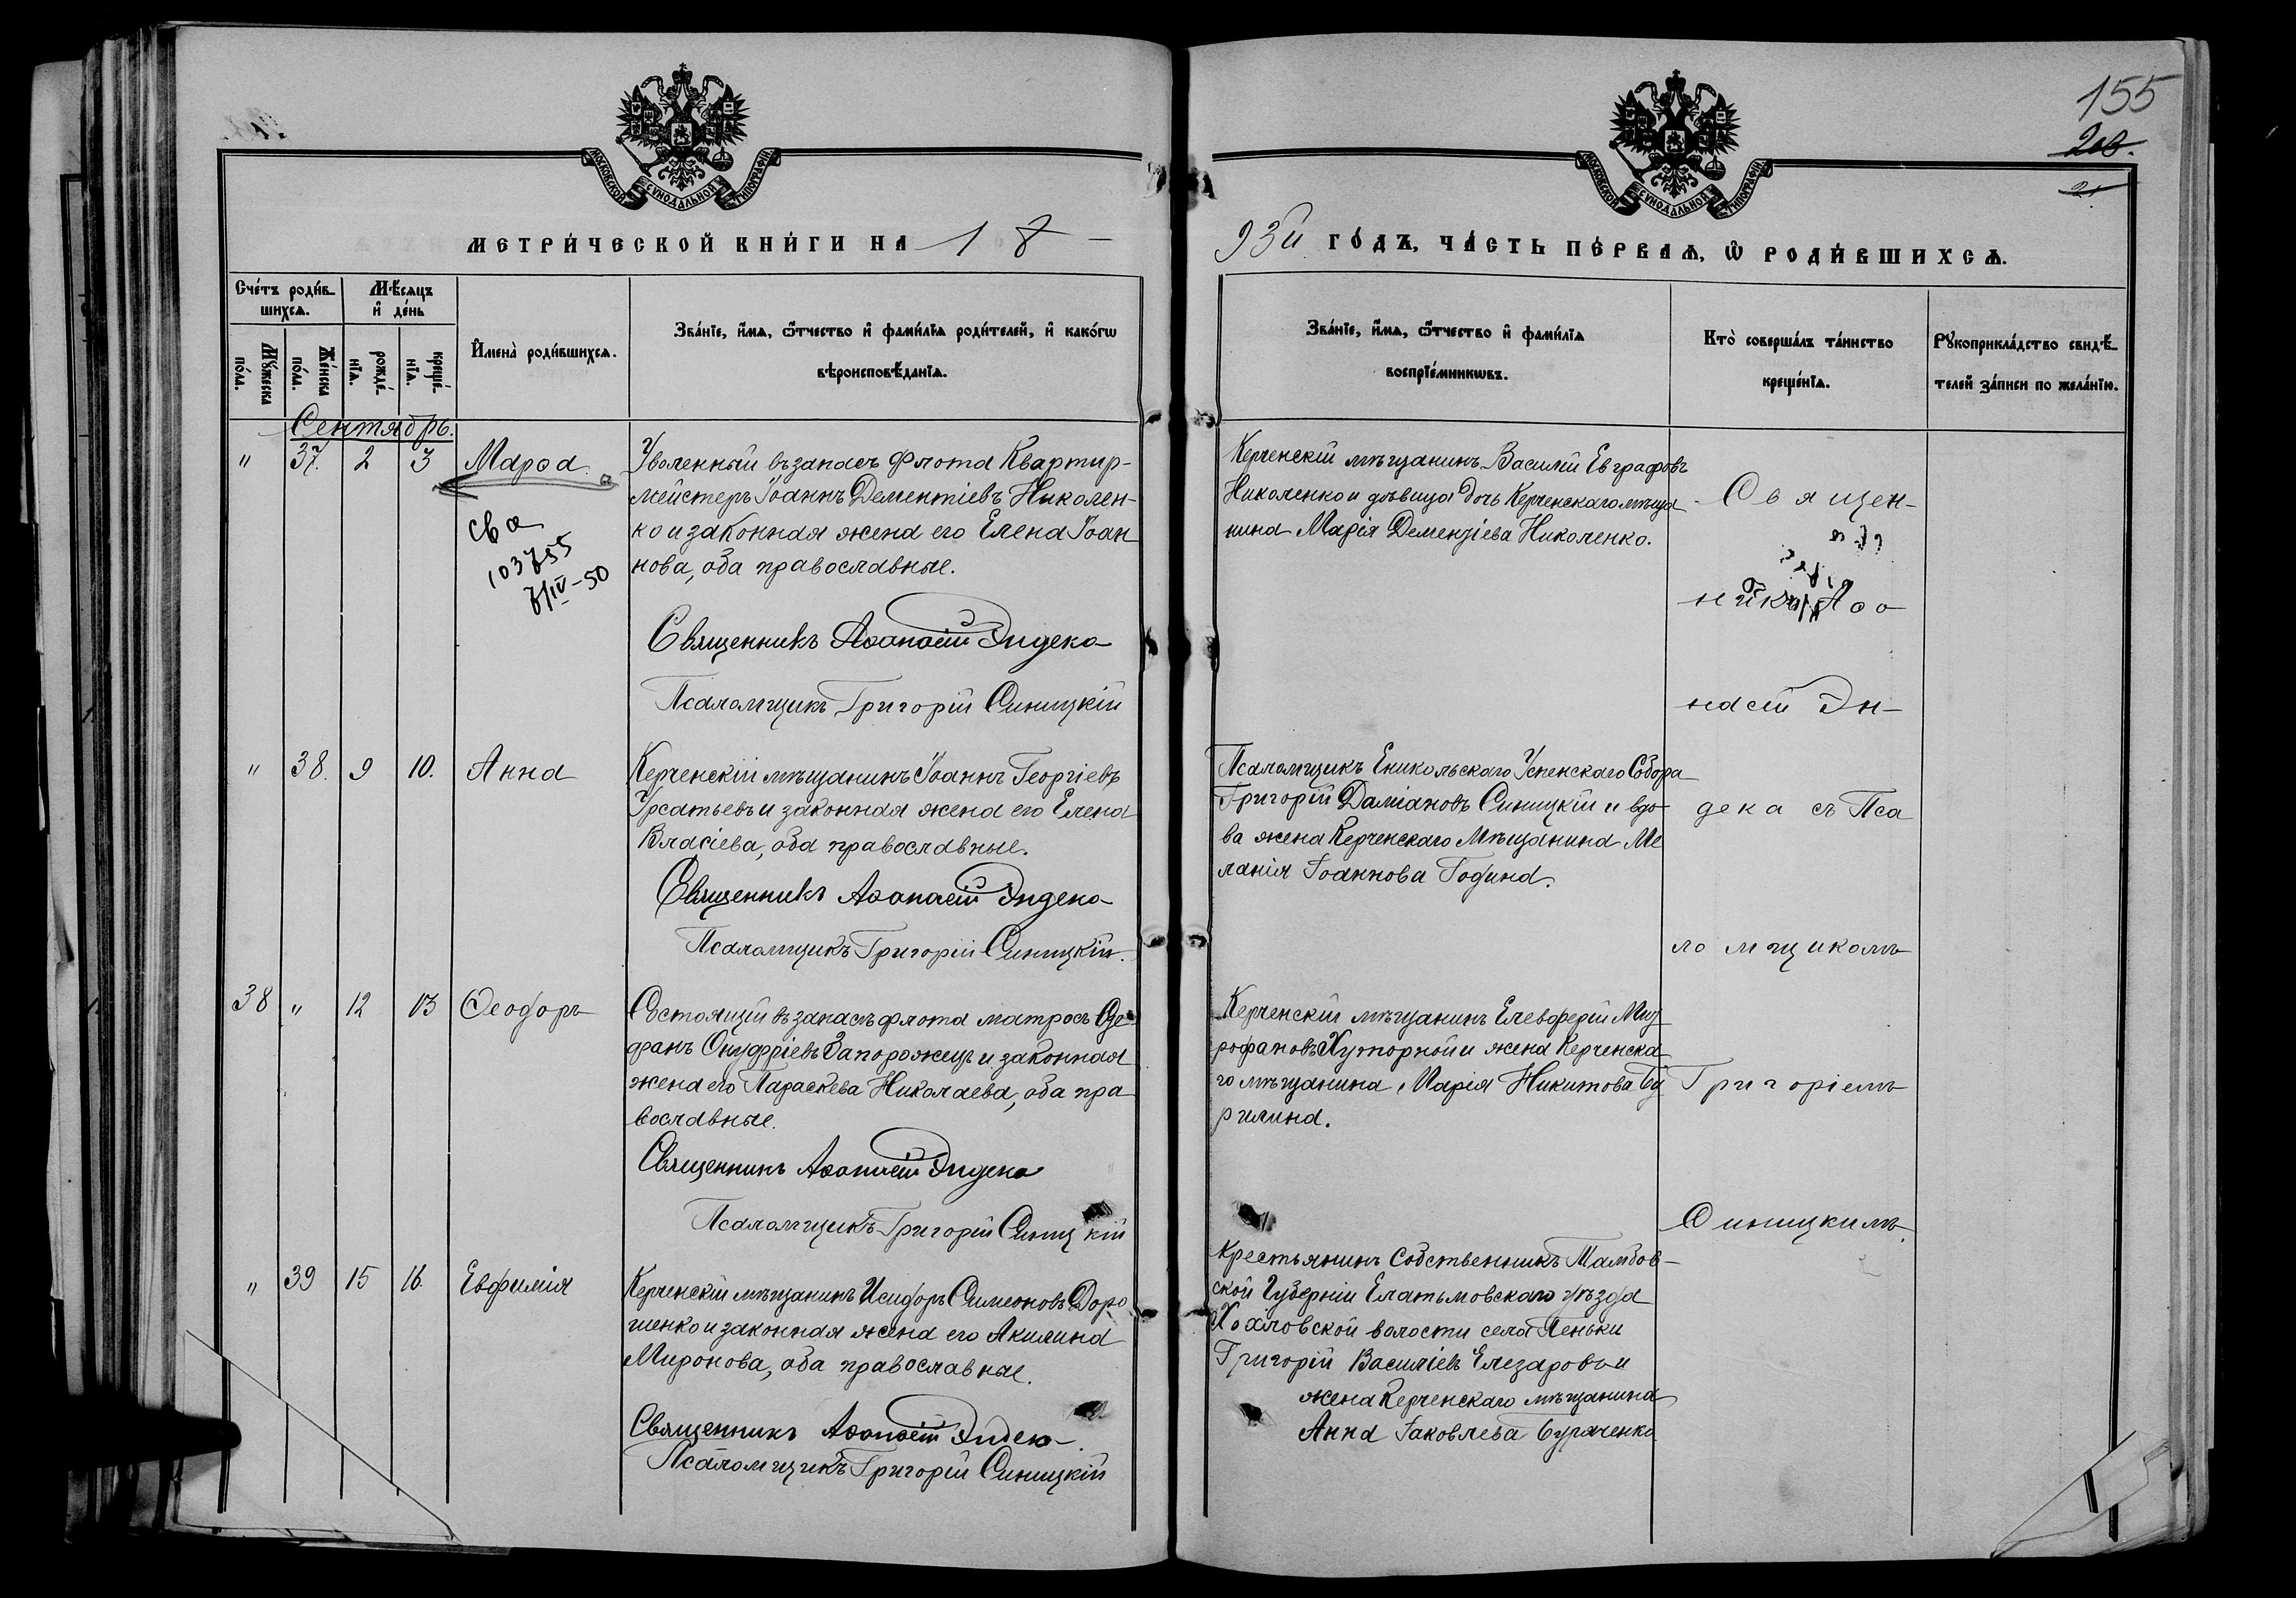 155
200.
21
МОСКОВСКОЙ СѴНОДАЛЬНОЙ ТИПОГРАФІИ
МОСКОВСКОЙ СѴНОДАЛЬНОЙ ТИПОГРАФІИ
МЕТРИ́ЧЕСКОЙ КНИ́ГИ НА 18
93й ГО́ДЪ, ЧА́СТЬ ПЕ́РВАѦ, Ѡ҆ РОДИ́ВШИХСѦ.
Сче́тъ роди́в-
шихсѧ.
Мѣ́сѧцъ
и҆ де́нь
Мꙋ́жеска
по́ла.
Же́нска
по́ла.
рожде́-
нїѧ.
креще́-
нїѧ.
И҆мена̀ роди́вшихсѧ.
Зва́нїе, и҆́мѧ, ѻ҆́тчество и҆ фами́лїѧ роди́телей, и҆ како́гѡ
вѣроисповѣ́данїѧ.
Зва́нїе, и҆́мѧ, ѻ҆́тчество и҆ фами́лїѧ
воспрїе́мникѡвъ.
Кто̀ соверша́лъ та́инство
креще́нїѧ.
Рꙋкоприкла́дство свидѣ́-
телей за́писи по жела́нїю.
Сентябрь.
" 37. 2 3 Марѳа
св а
103755
7/IV-50
Уволенный въ запасъ флота Квартир-
мейстеръ Іоаннъ Дементіевъ Николен-
ко и законная жена его Елена Іоан
нова, оба православные.
Священникъ Аѳанасій Эндека
Псаломщикъ Григорій Синицкій
Керченскій мѣщанинъ Василій Евграфовъ
Николенко и дѣвица дочь Керченскаго мѣща
нина Марія Дементіева Николенко.
Священ-
никъ Аѳа
насій Эн-
" 38. 9 10. Анна
Керченскій мѣщанинъ Іоаннъ Георгіевъ
Урсатьевъ и законная жена его Елена
Власіева, оба православные.
Священникъ Аѳанасій Эндека
Псаломщикъ Григорій Синицкій.
Псаломщикъ Еникольскаго Успенскаго Собора
Григорій Даміановъ Синицкій и вдо-
ва жена Керченскаго Мѣщанина Ме
ланія Іоаннова Година.
дека съ Пса
ломщикомъ
38 " 12 13 Ѳеодоръ
Состоящій въ запасѣ флота матросъ
Онуфріевъ Запорожецъ и законная
жена его Параскева Николаева, оба пра
вославные.
Священникъ Аѳанасій Эндека
Псаломщикъ Григорій Синицкій
Керченскій мѣщанинъ Елевферій Мит
рофановъ Хуторной и жена Керченска
го мѣщанина Марія Никитова Бу
рилина.
Григоріемъ
Синицкимъ.
" 39 15 16. Евфимія
Керченскій мѣщанинъ Исидоръ Симеоновъ Доро
шенко и законная жена его Акилина
Миронова, оба православные.
Священникъ Аѳанасій Эндека
Псаломщикъ Григорій Синицкій
Крестьянинъ Собственникъ Тамбов-
ской Губерніи Елатьмовскаго уѣзда
Хохловской волости села Пеньки
Григорій Василіевъ Елезаровъ и
жена Керченскаго мѣщанина
Анна Іаковлева Буряченко